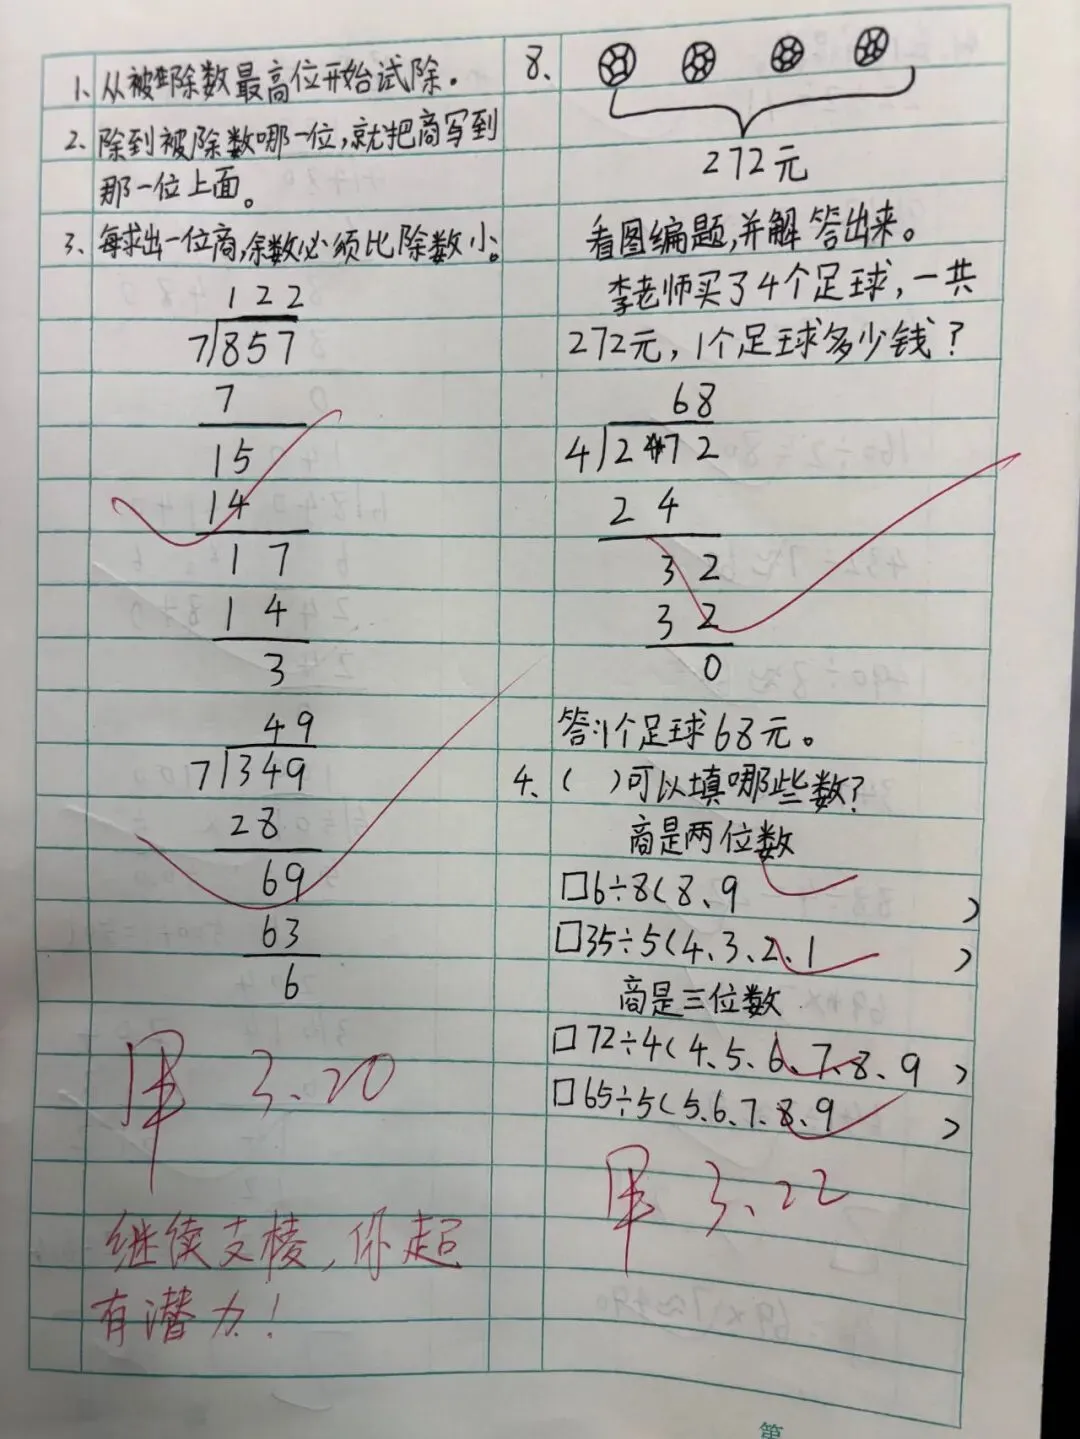 1、从被除数最高位开始试除。
2、除到被除数哪一位,就把商写到
那一位上面。
3、每求出一位商,余数必须比除数小。
122
7)857
7
15
14
17
14
3
49
7)349
28
69
63
6
3.20
继续支棱,你超
有潜力!
8、
272元
看图编题,并解答出来。
李老师买了4个足球,一共
272元,1个足球多少钱?
68
4)272
24
32
32
0
答:1个足球68元。
4、( )可以填哪些数?
商是两位数
□6÷8(8、9 )
□35÷5(4、3、2、1 )
商是三位数
□72÷4(4、5、6、7、8、9 )
□65÷5(5、6、7、8、9 )
3.22
第